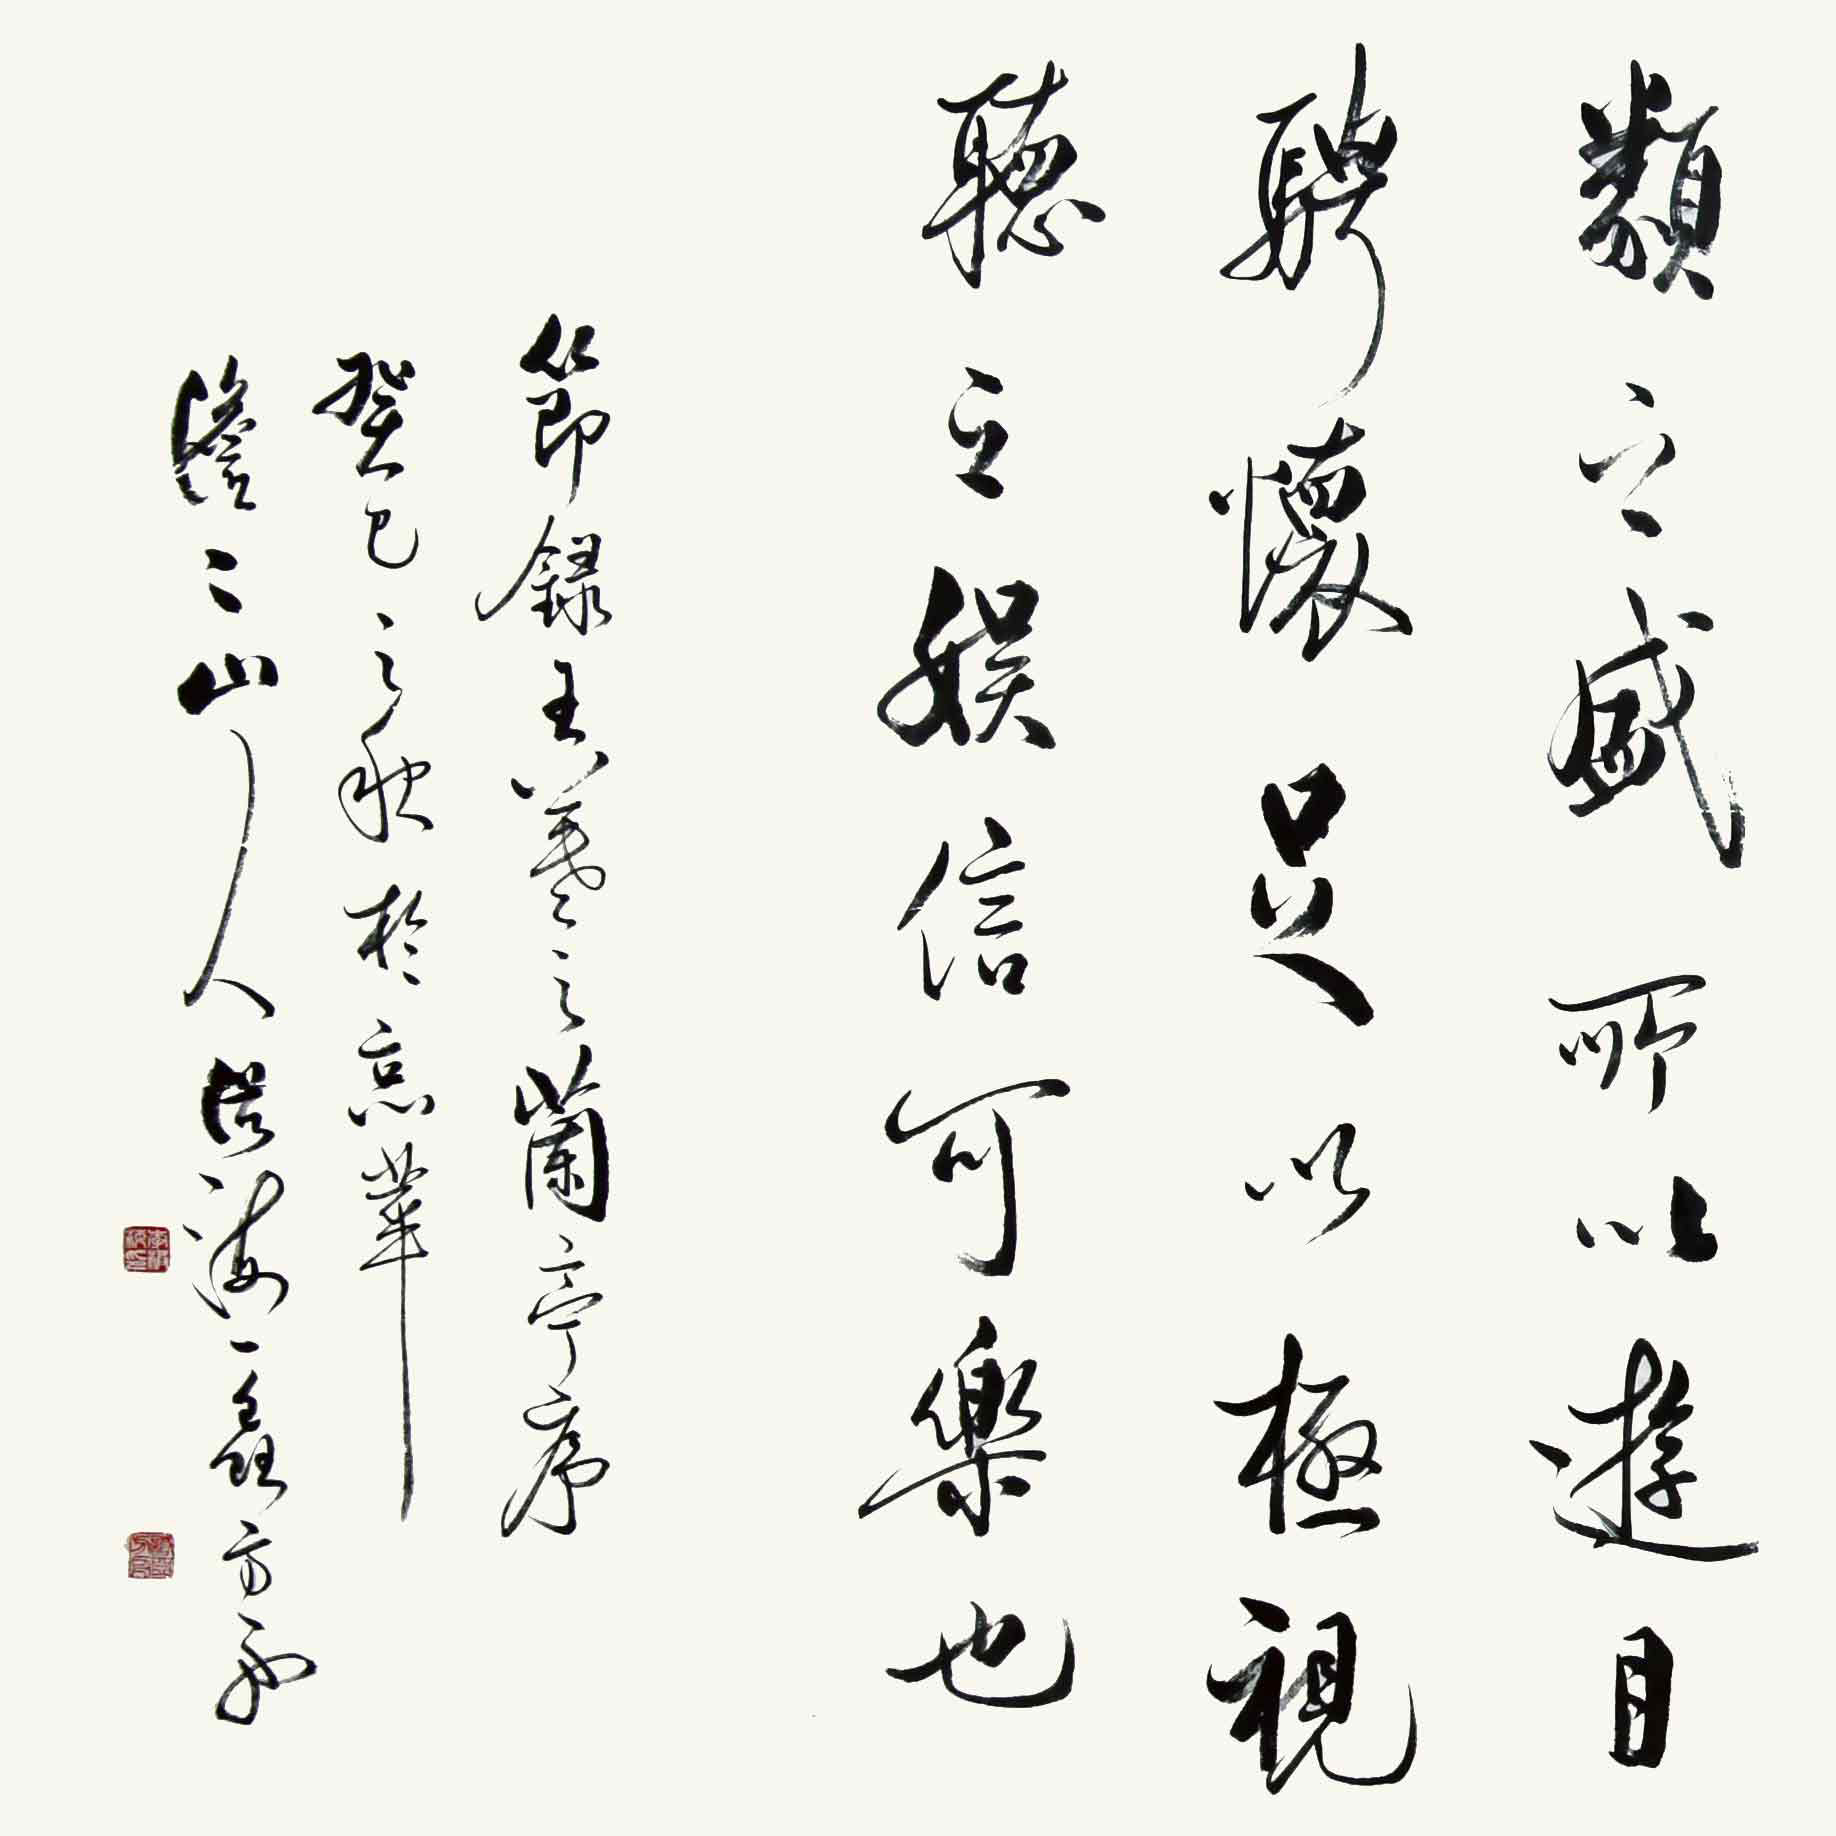 類之盛所以遊目
騁懷足以極視
聽之娛信可樂也
節錄王羲之蘭亭序
癸巳之秋於京華
澹之山人